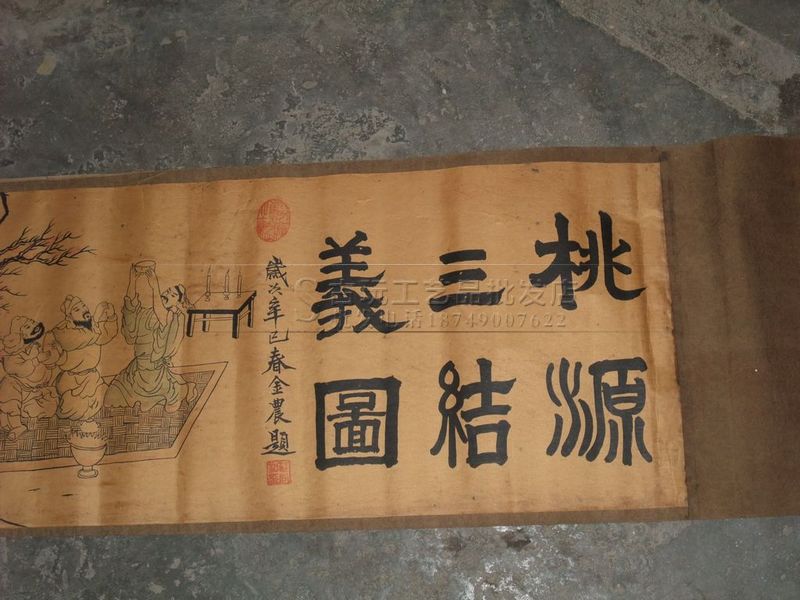 桃源
三結
義圖
歲次辛巳春金農題
工艺品批发店
电话18749007622